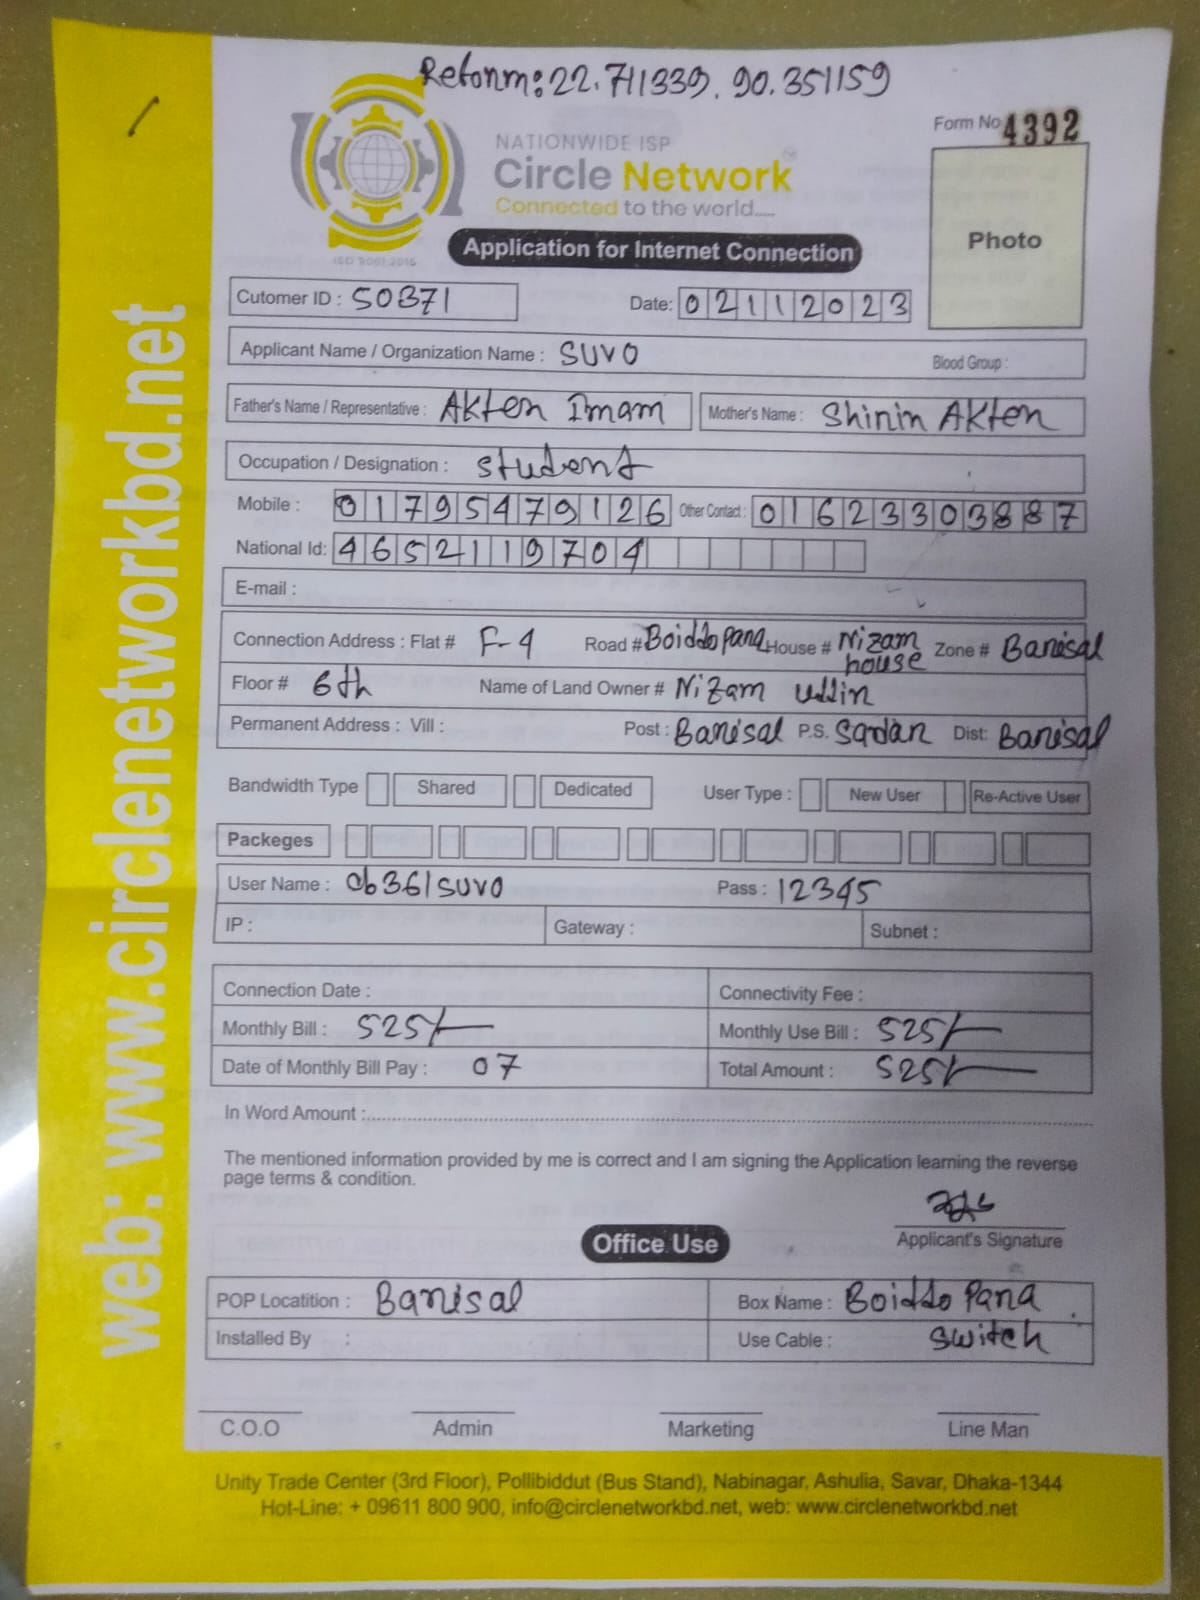 Retonm: 22.711339. 90.351159
Form No 4392
NATIONWIDE ISP
Circle Network
Connected to the world.....
ISO 9001:2015
Photo
Application for Internet Connection
Cutomer ID : 50371
Date: 02112023
Applicant Name / Organization Name : SUVO
Blood Group :
Father's Name / Representative : Akten Imam
Mother's Name : Shinin Akten
Occupation / Designation : Student
Mobile : 01795479126 Other Contact : 01623303887
National Id: 4652119704
E-mail :
Connection Address : Flat # F-4 Road # Boiddo Pana House # Nizam house Zone # Banisal
Floor # 6th Name of Land Owner # Nizam Uddin
Permanent Address : Vill : Post : Banisal P.S. Sadan Dist: Banisal
Bandwidth Type Shared Dedicated User Type : New User Re-Active User
Packeges
User Name : cb361suvo Pass : 12345
IP : Gateway : Subnet :
Connection Date : Connectivity Fee :
Monthly Bill : 525/- Monthly Use Bill : 525/-
Date of Monthly Bill Pay : 07 Total Amount : 525/-
In Word Amount :
The mentioned information provided by me is correct and I am signing the Application learning the reverse
page terms & condition.
Applicant's Signature
Office Use
POP Locatition : Banisal Box Name : Boiddo Pana
Installed By : Use Cable : Switch
C.O.O Admin Marketing Line Man
Unity Trade Center (3rd Floor), Pollibiddut (Bus Stand), Nabinagar, Ashulia, Savar, Dhaka-1344
Hot-Line: + 09611 800 900, info@circlenetworkbd.net, web: www.circlenetworkbd.net
web: www.circlenetworkbd.net